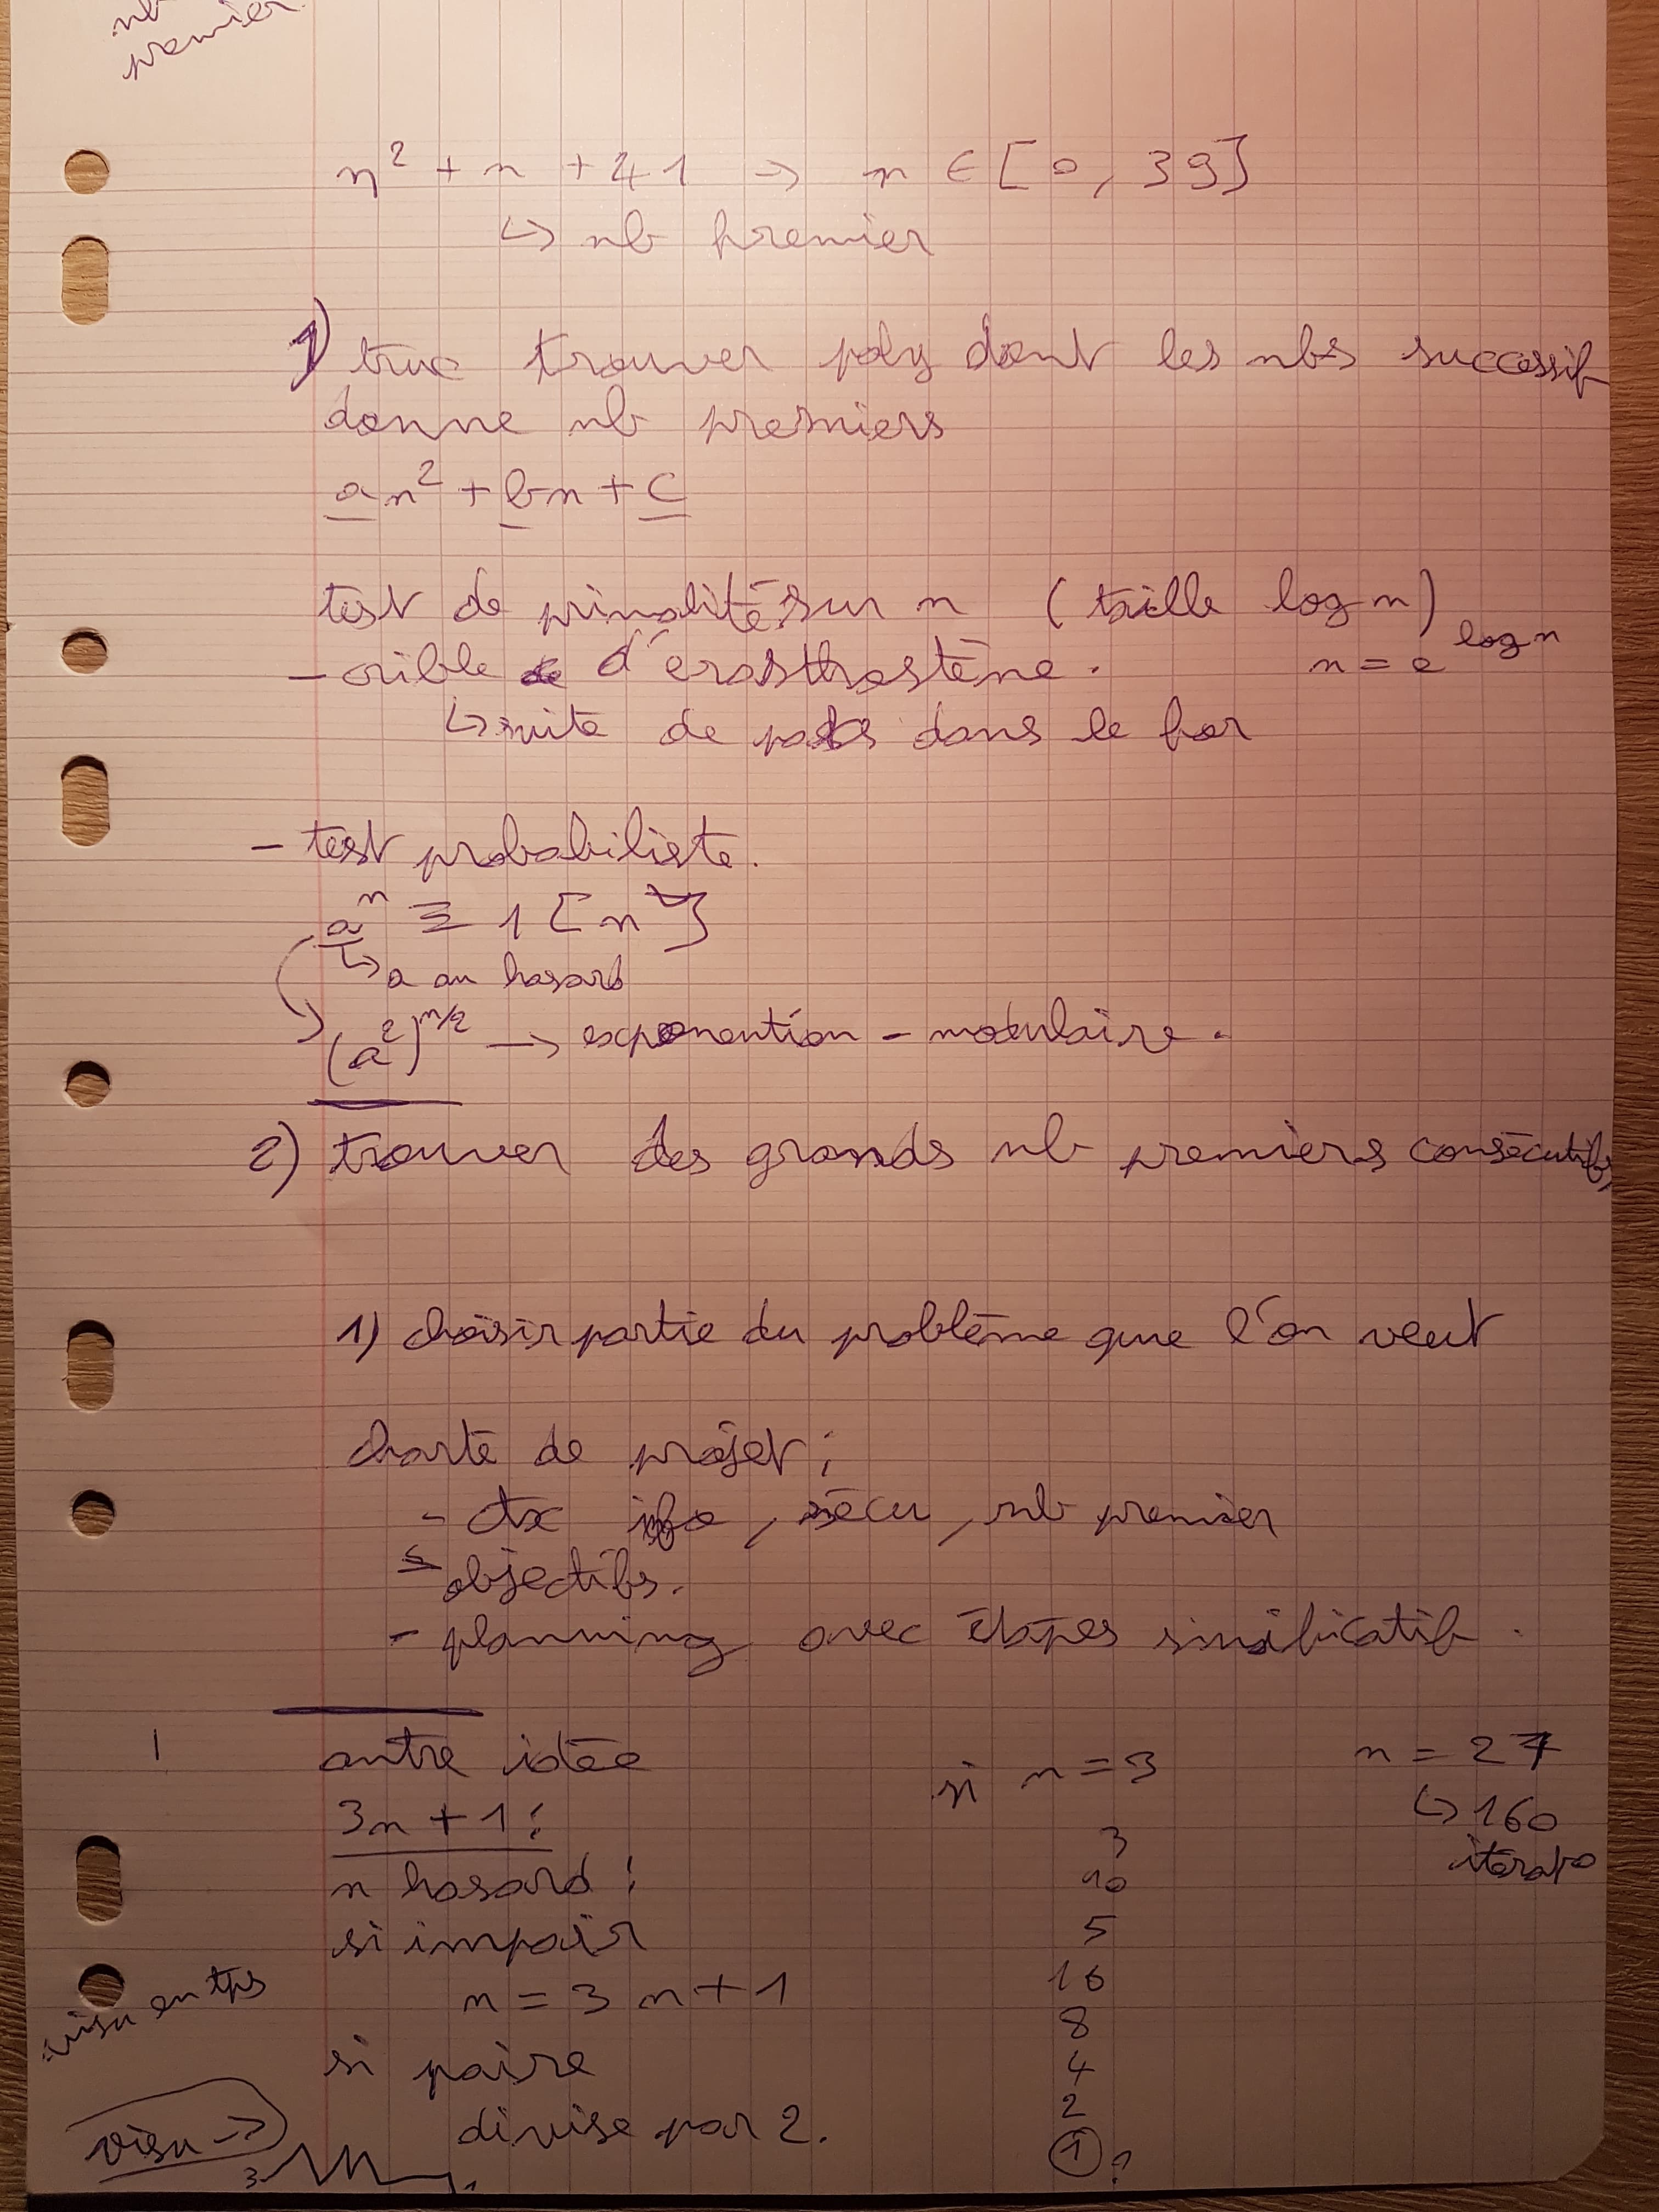 nb
premier
n² + n + 41 → n ∈ [0, 39]
↳ nb premier
1) truc trouver poly dont les nbs successif
donne nb premiers
an² + bn + c
test de primalité sur n (taille log n)
- crible d'erasthrostène. n = e^log n
↳ suite de pas dans le for
- test probabiliste.
aⁿ ≡ 1 [n]
↳ a au hasard
(a²)^n/2 → exponention - modulaire.
2) trouver des grands nb premiers consécutifs
1) choisir partie du problème que l'on veut
charte de projet :
- ctx info, sécu, nb premier
- objectifs.
- planning avec étapes sinificatif.
autre idée si n = 3 n = 27
3n + 1 : ↳ 160
3 iterato
n hasard : 10
si impair 5
n = 3n + 1 16
visu en tps 8
si paire 4
2
divise par 2. 1 ?
visu →
3 1